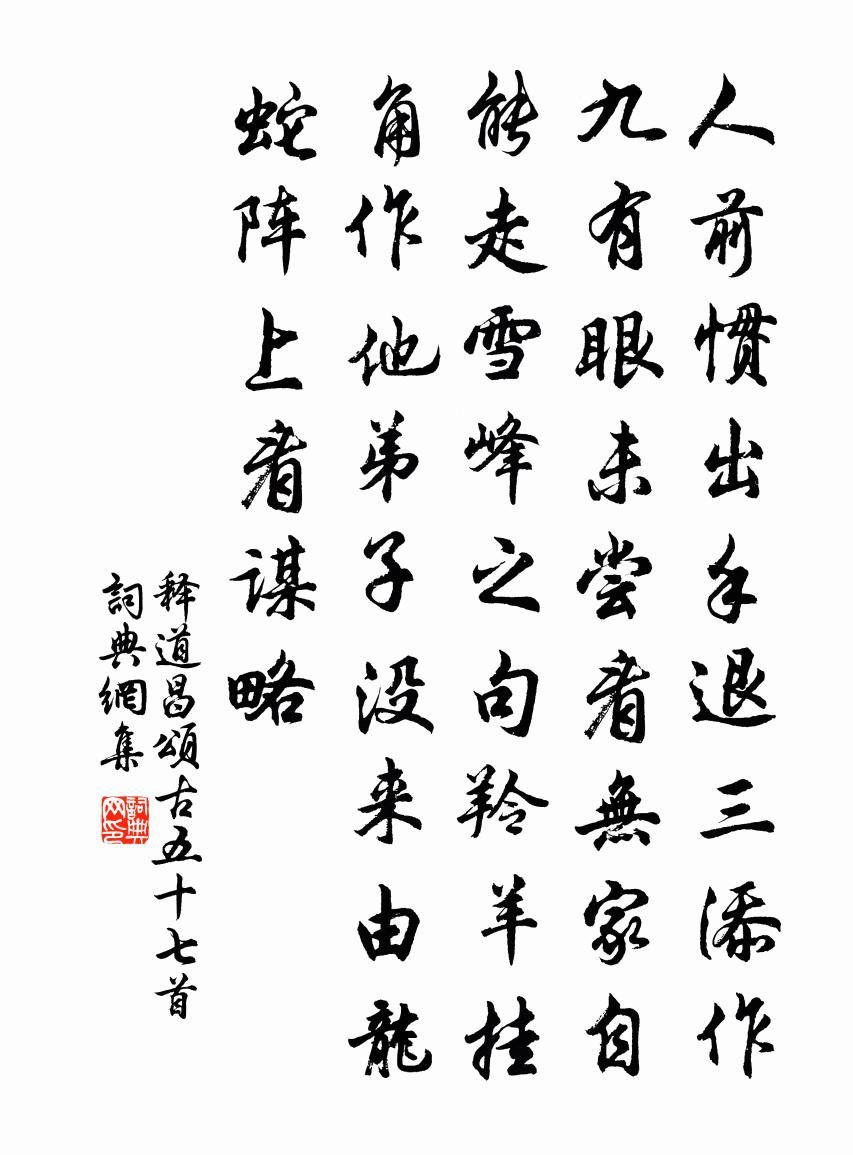 人前惯出手退三添作
九有眼未尝看無家自
能走雪峰之句羚羊挂
角作他弟子没来由龍
蛇阵上看谋略
释道昌頌古五十七首
詞典網集
詞典网印